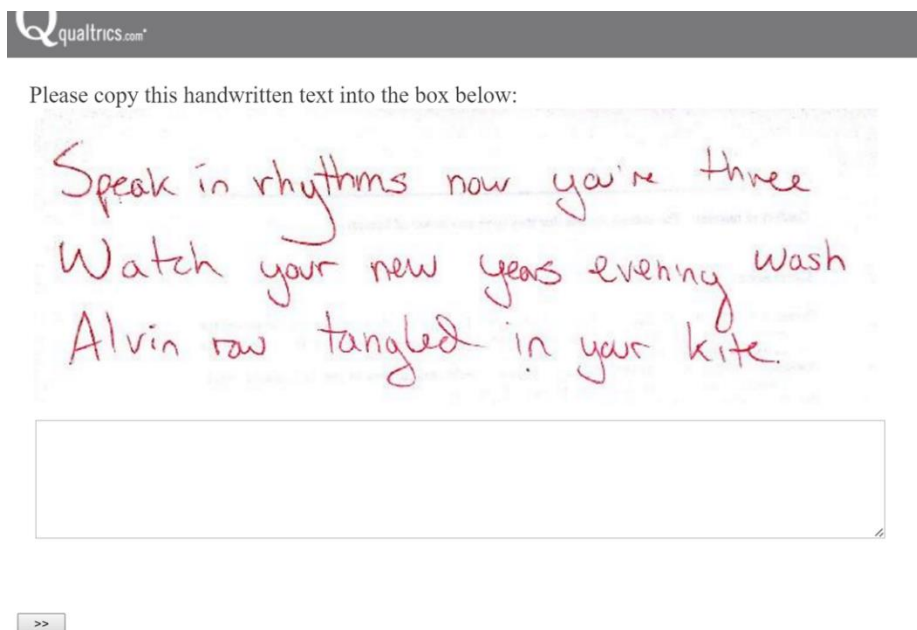 qualtrics.com
Please copy this handwritten text into the box below:
Speak in rhythms now you're three
Watch your new years evening wash
Alvin row tangled in your kite.
>>